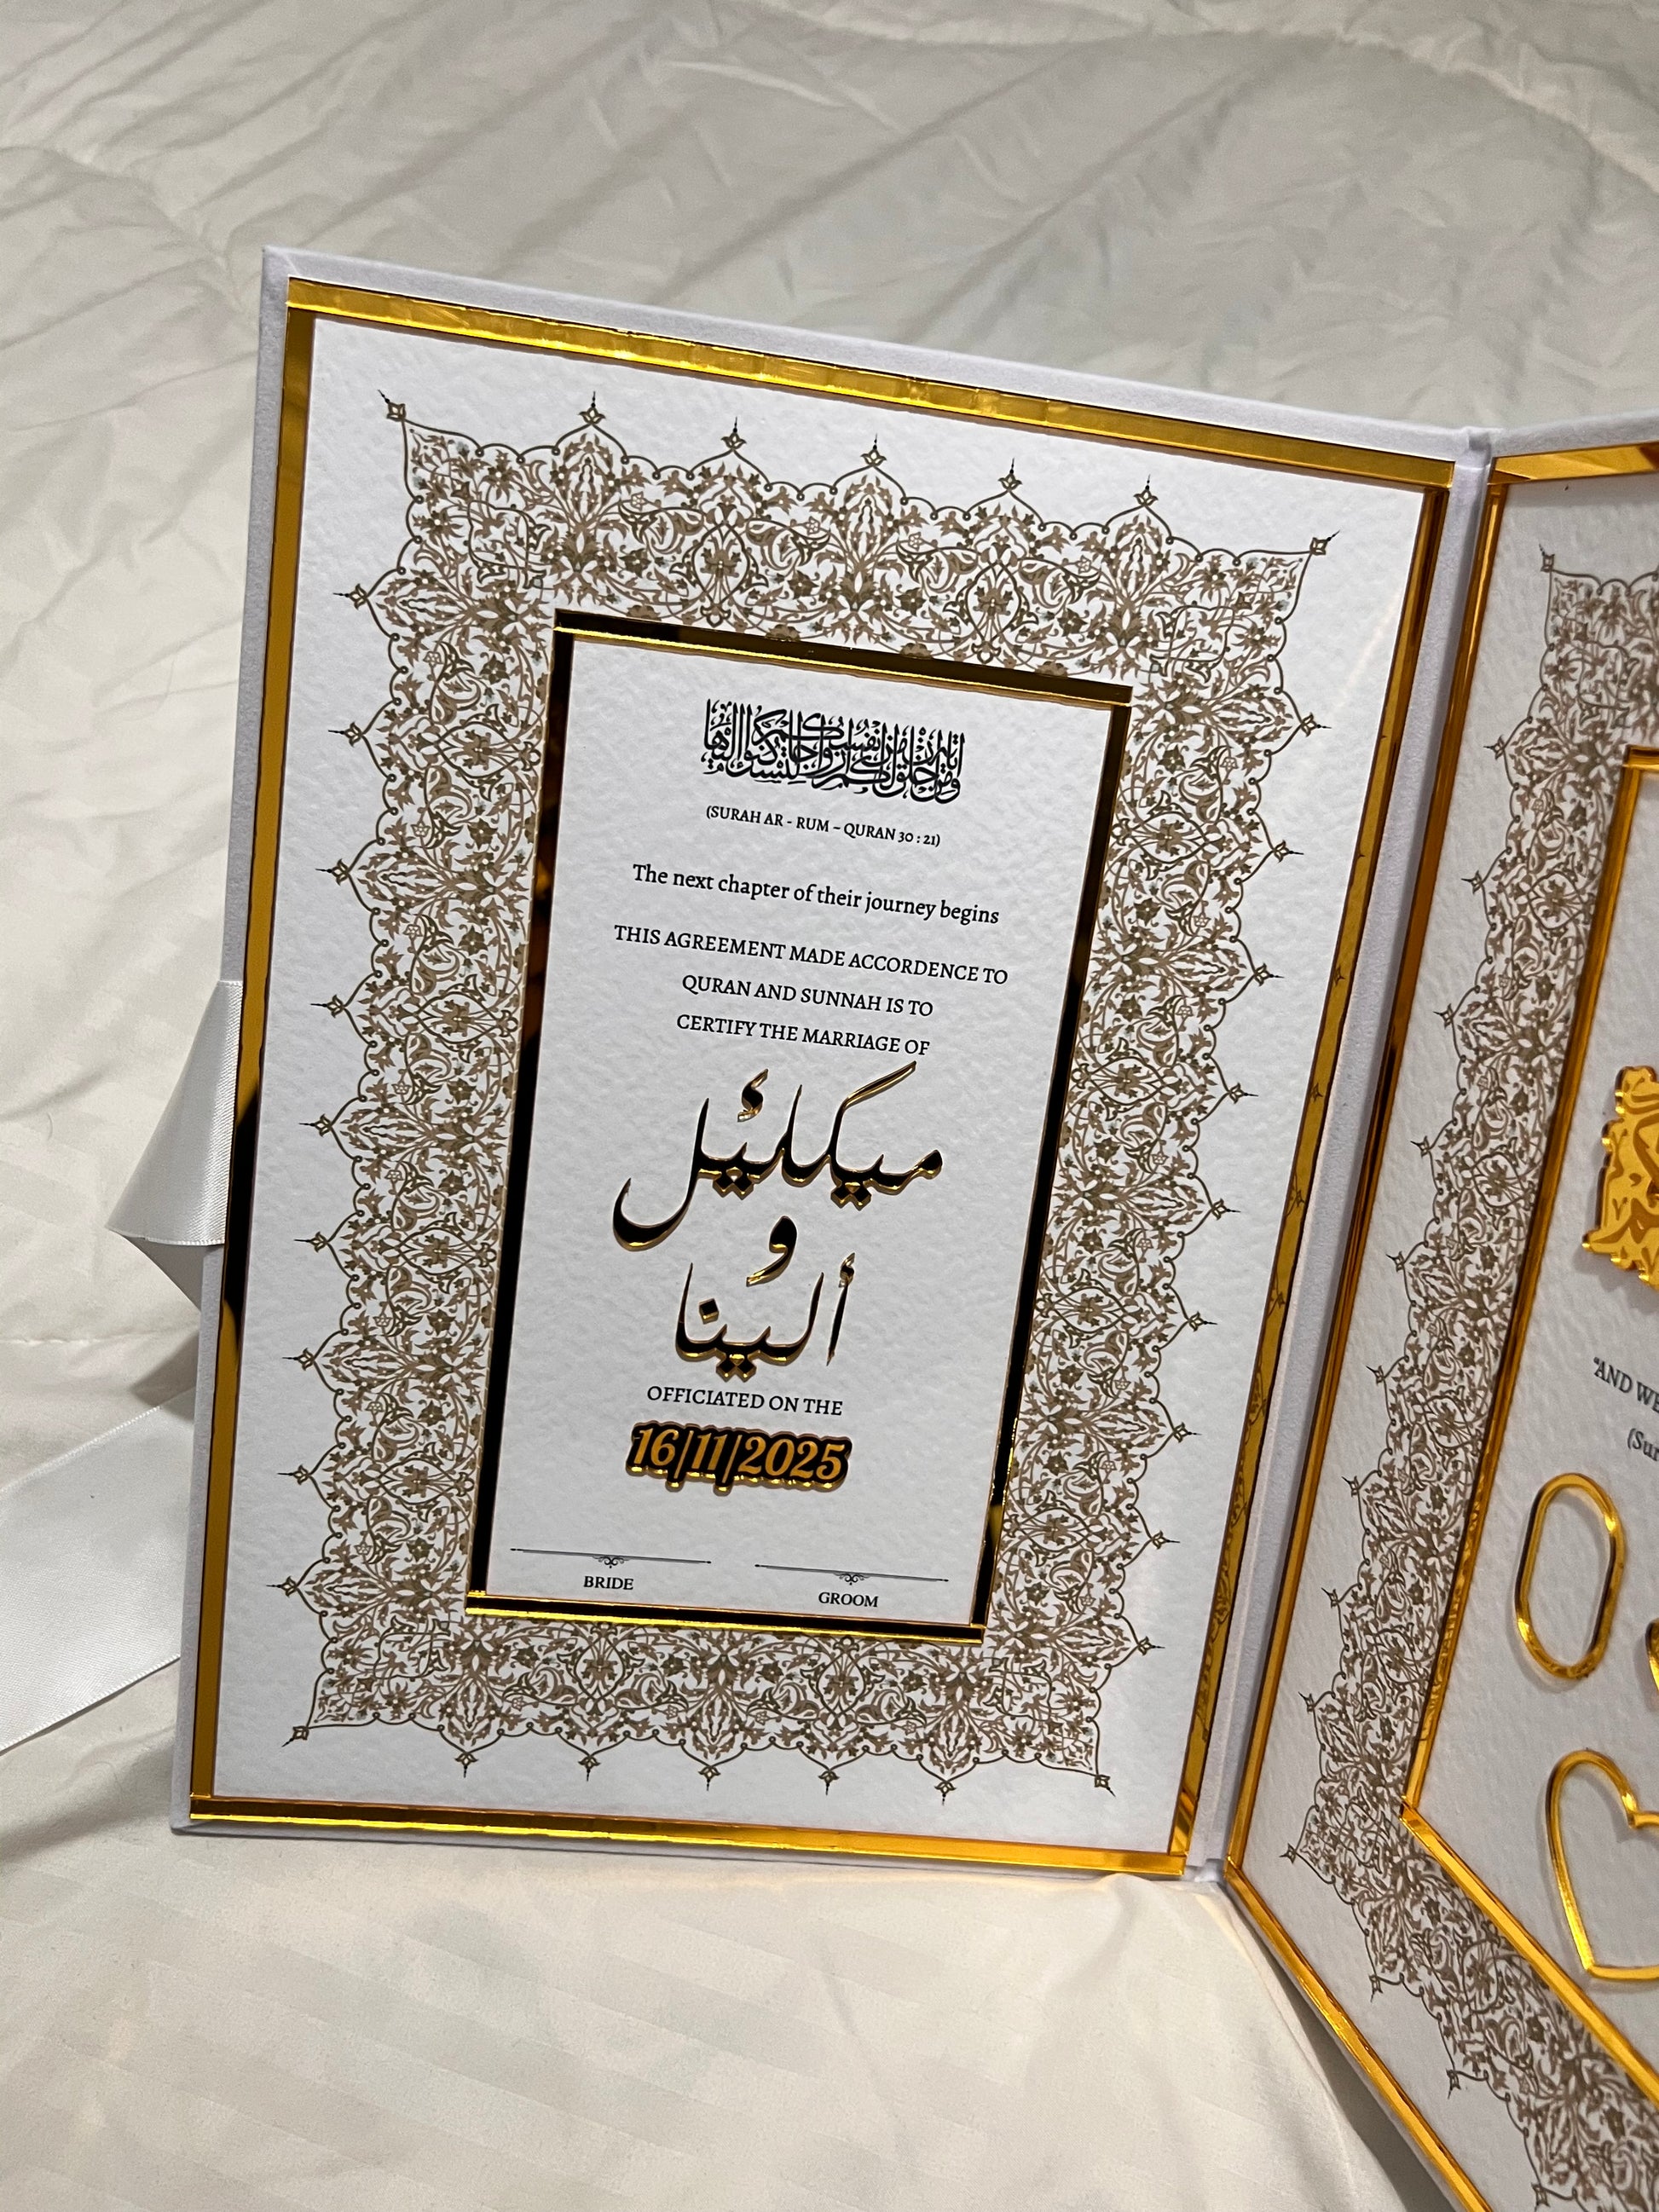 ومن آياته أن خلق لكم من أنفسكم أزواجا لتسكنوا إليها
(SURAH AR - RUM ~ QURAN 30 : 21)
The next chapter of their journey begins
THIS AGREEMENT MADE ACCORDENCE TO
QURAN AND SUNNAH IS TO
CERTIFY THE MARRIAGE OF
ميكلئيل
و
ألينا
OFFICIATED ON THE
16/11/2025
BRIDE
GROOM
"AND WE
(Sur